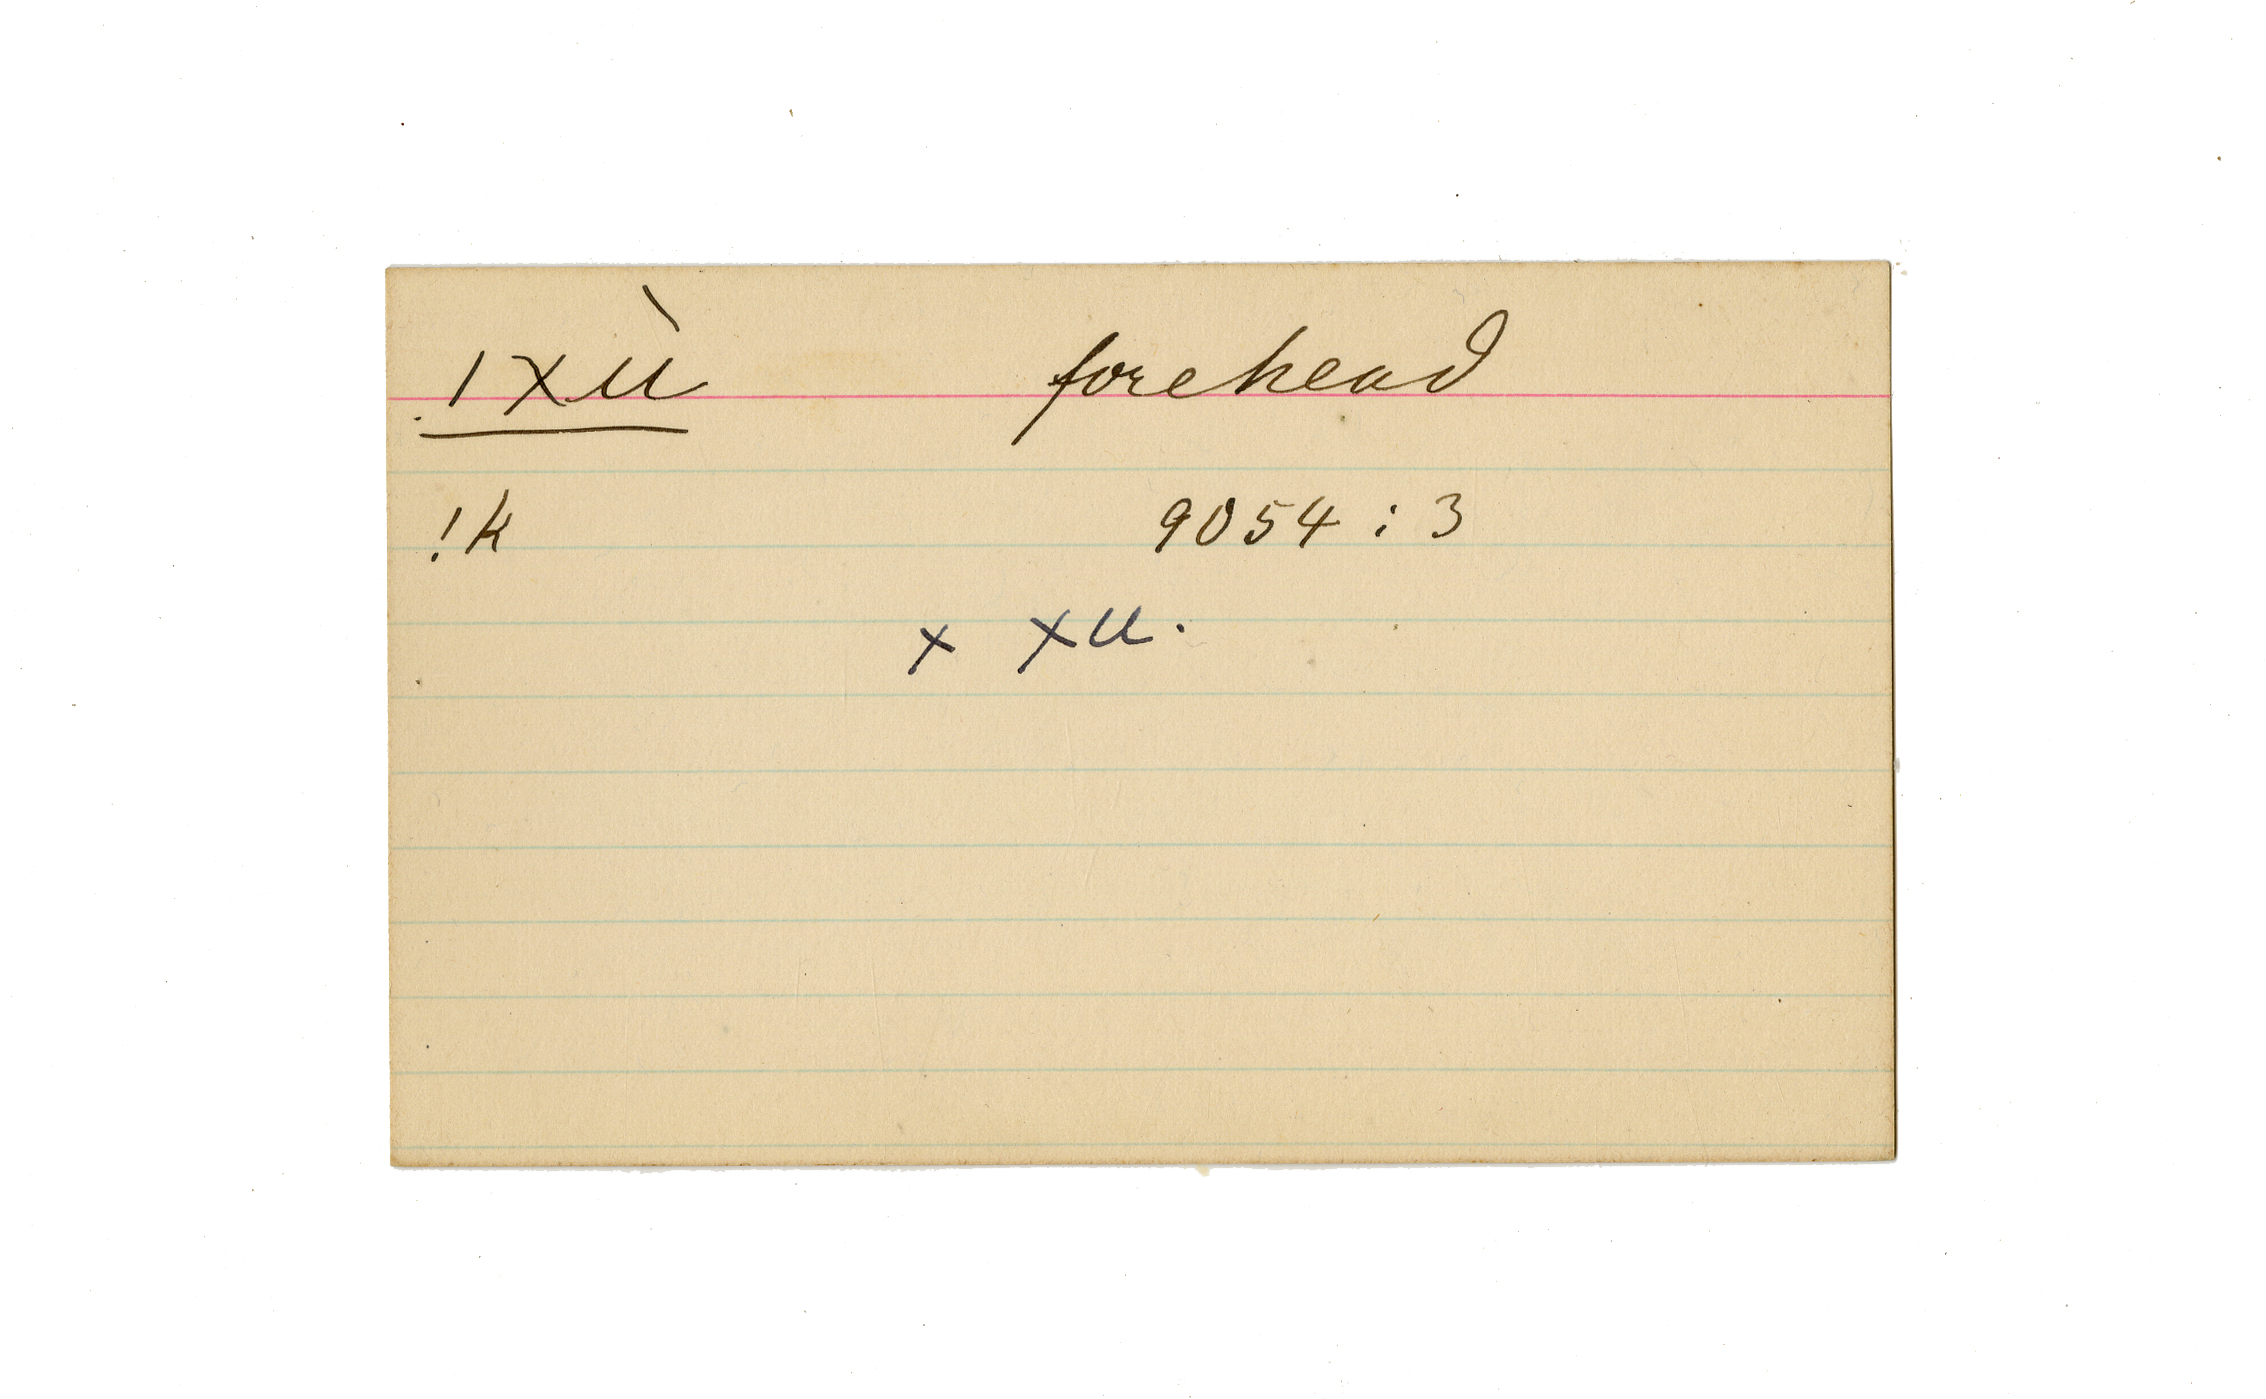 ǀxù forehead
!k 9054 : 3
x xu.